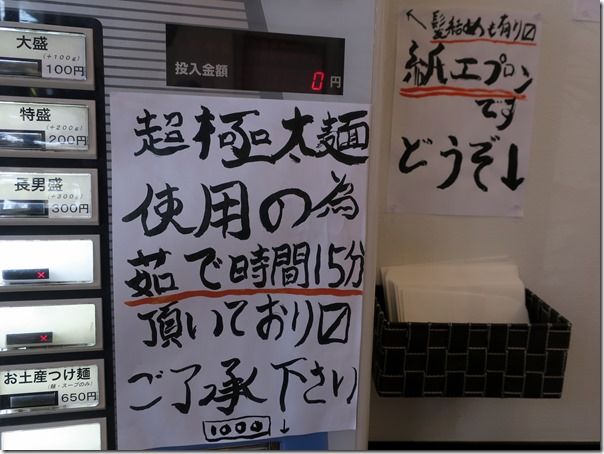 大盛
(+100g)
100円
特盛
(+200g)
200円
長男盛
(+300g)
300円
お土産つけ麺
(麺・スープのみ)
650円
投入金額
0円
超極太麺
使用の為
茹で時間15分
頂いており〼
ご了承下さい
1000↓
↖髪結めも有り〼
紙エプロン
です
どうぞ↓